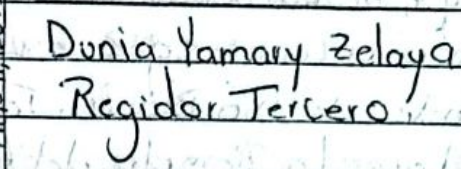 Dunia Yamary Zelaya
Regidor Tercero